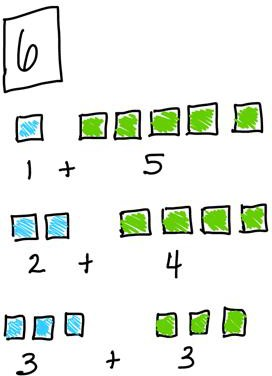 6
1 + 5
2 + 4
3 + 3